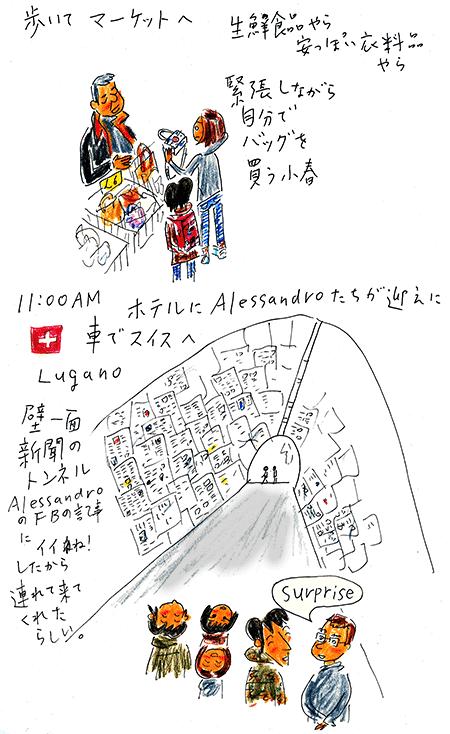 歩いて マーケットへ
生鮮食品やら
安っぽい衣料品
やら
緊張しながら
自分で
バッグを
買う小春
11:00AM
ホテルに Alessandroたちが迎えに
車でスイスへ
Lugano
壁一面
新聞の
トンネル
Alessandro
のFBの記事
に
イイね!
したから
連れて来て
くれた
らしい。
surprise